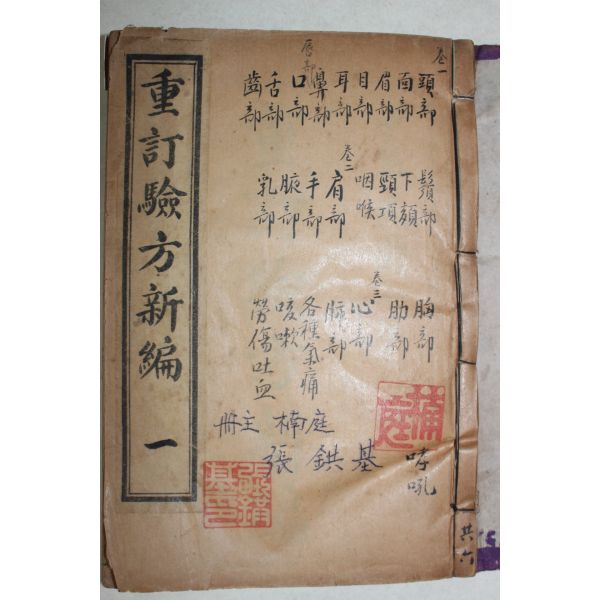 重訂驗方新編 一
卷一
頭部
面部
眉部
目部
耳部
鼻部
唇部
口部
舌部
齒部
鬚部
下頦
頸項
咽喉
卷二
肩部
手部
腋部
乳部
卷三
胸部
肋部
心部
部
各種氣痛
咳嗽
勞傷吐血
哮吼
册主 楠庭
張鉷基
共六
楠庭
張鉷基印